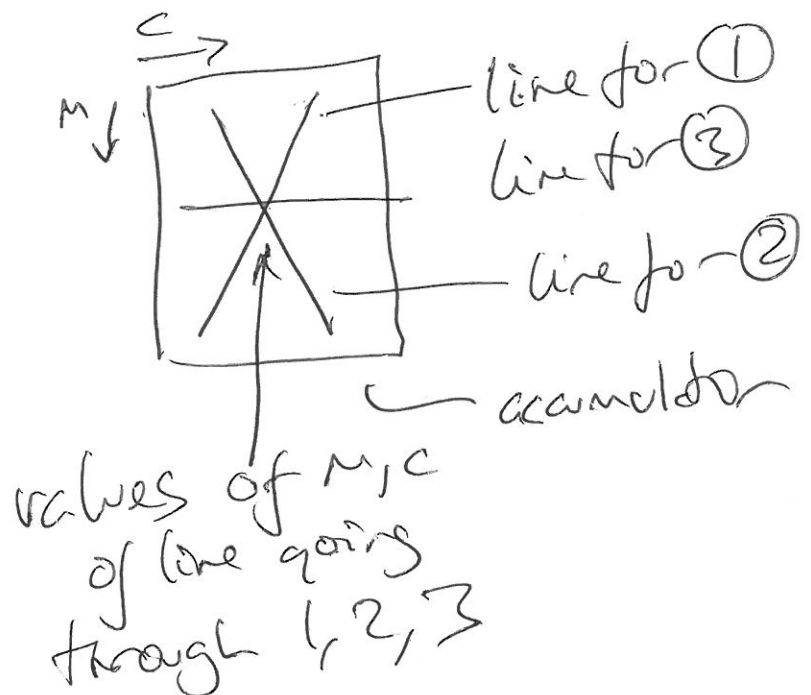 C
M
line for ①
line for ③
line for ②
accumulator
values of M, C
of line going
through 1, 2, 3